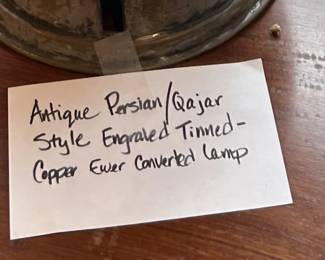 Antique Persian/Qajar
Style Engraled Tinned-
Copper Ewer Converted Lamp